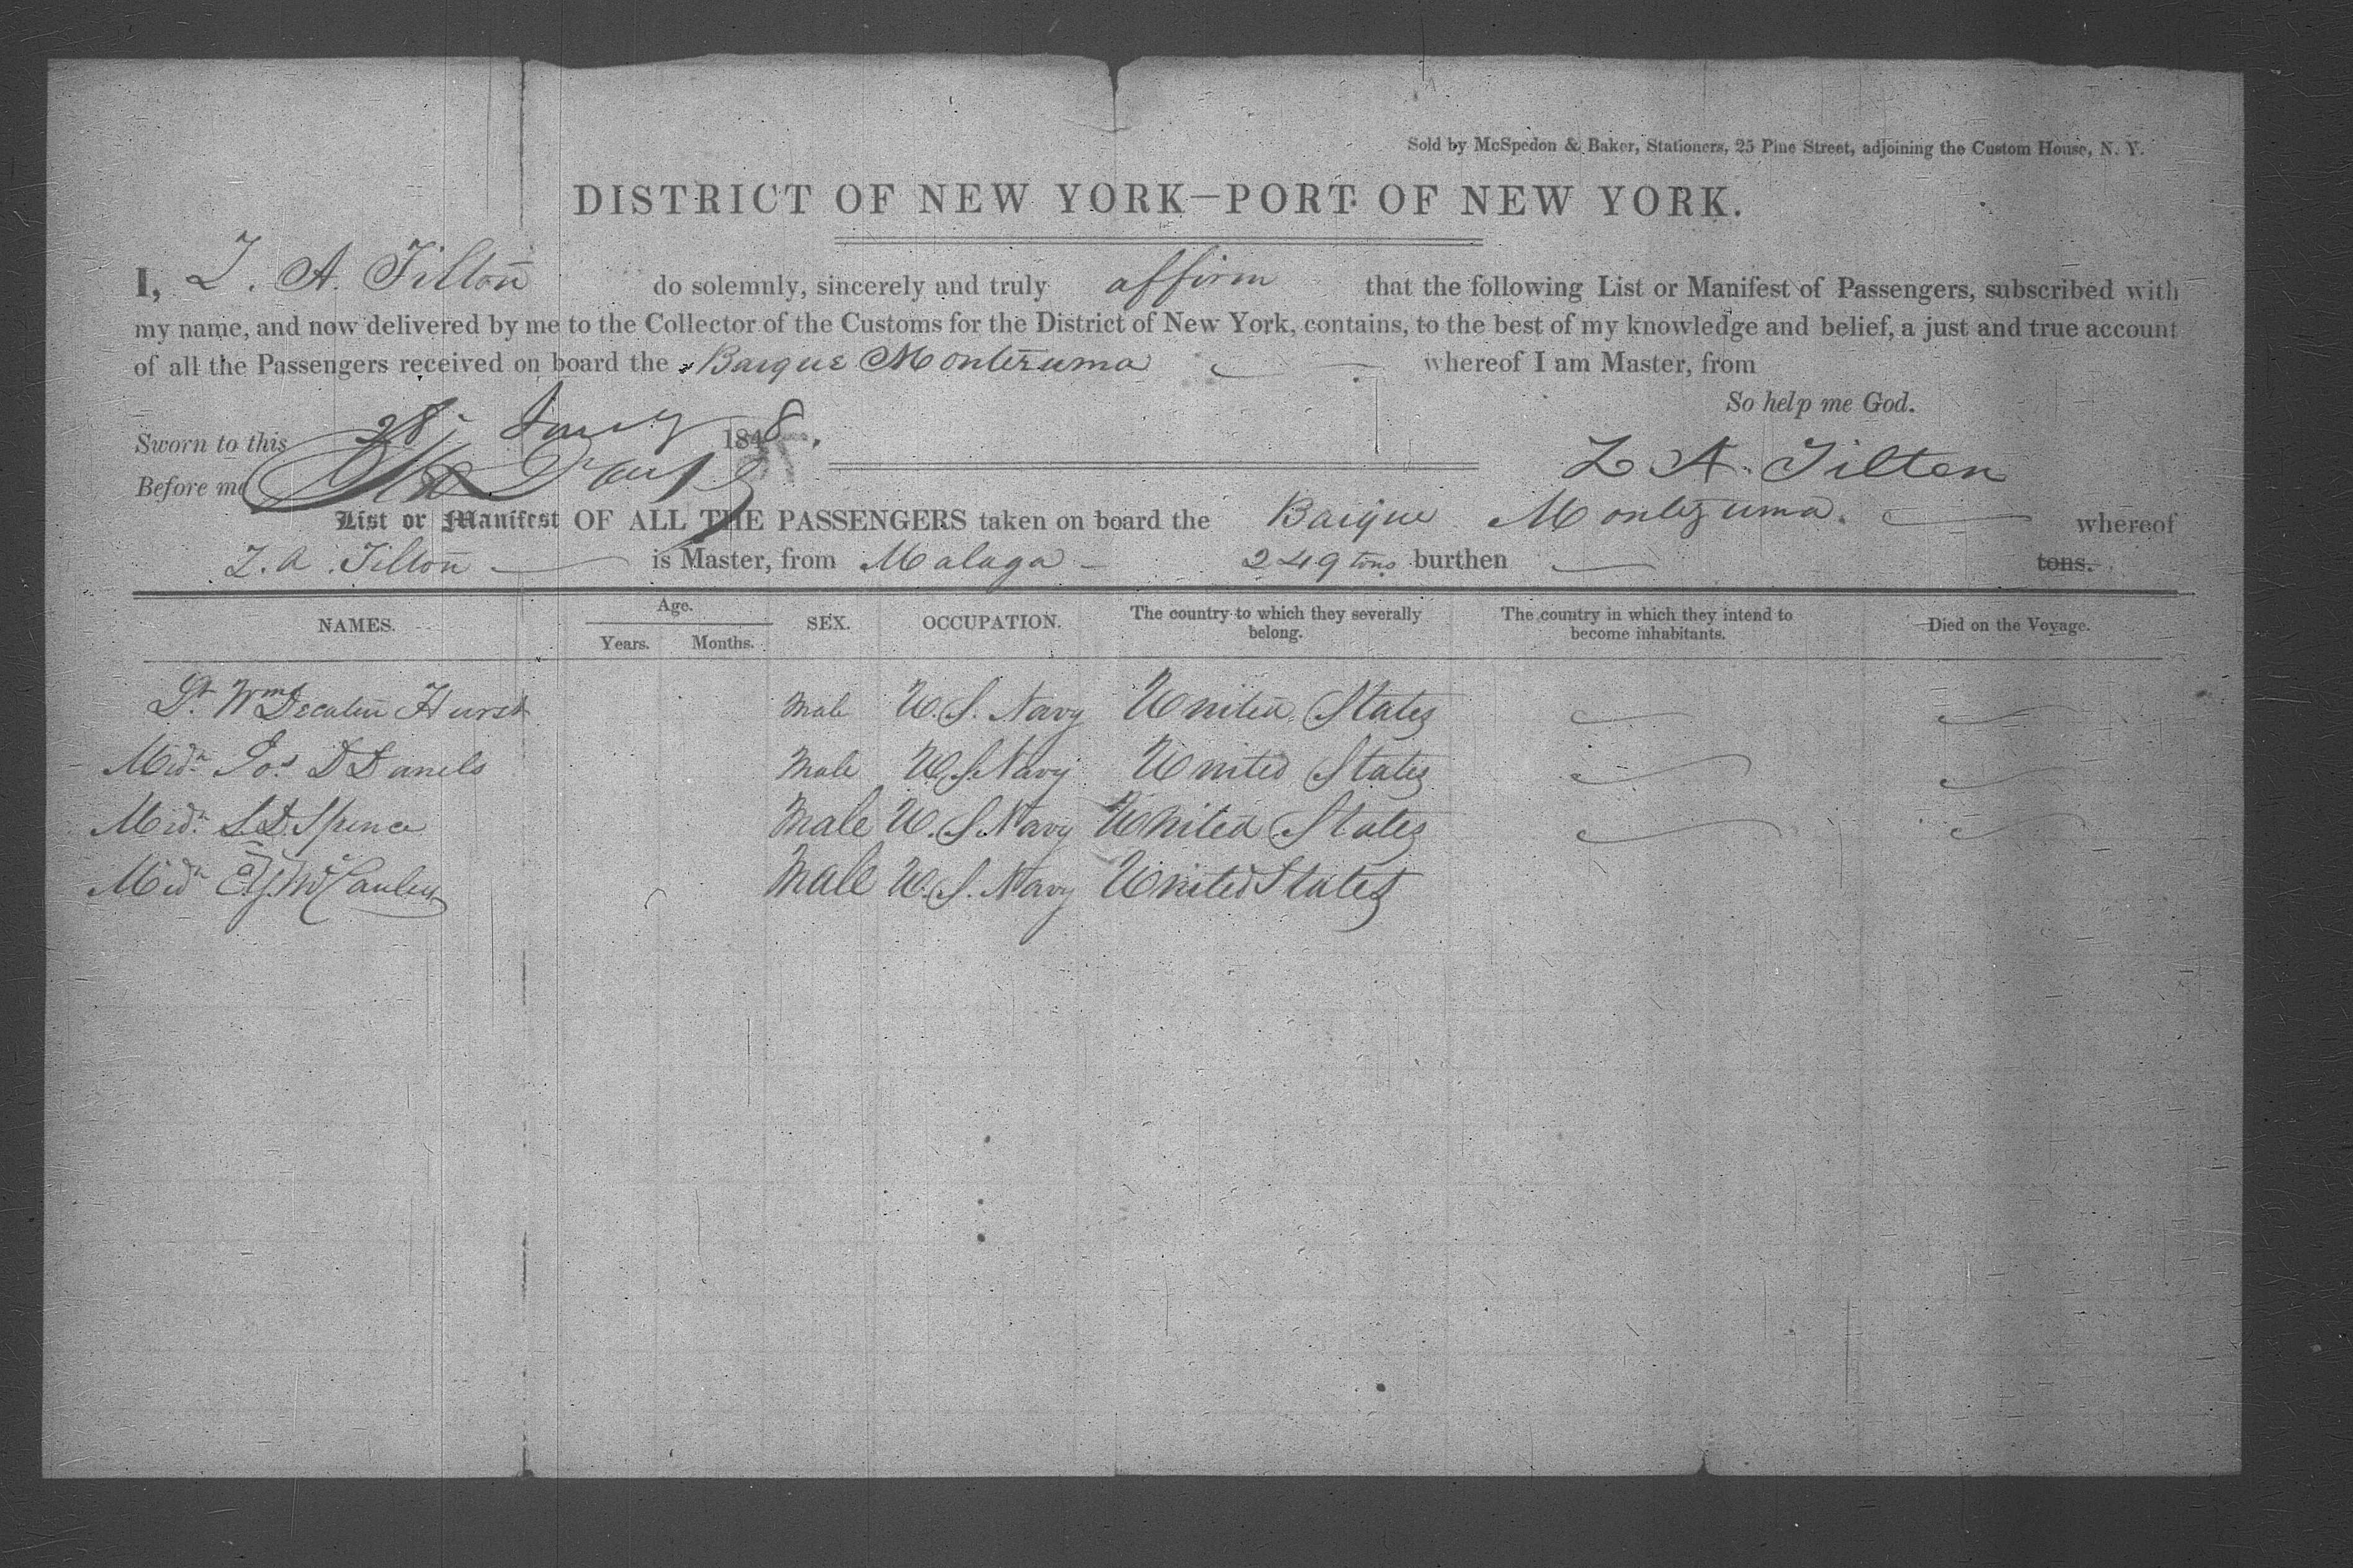 Sold by McSpedon & Baker, Stationers, 25 Pine Street, adjoining the Custom House, N. Y.
DISTRICT OF NEW YORK—PORT OF NEW YORK.
I, Z. A. Tilton do solemnly, sincerely and truly affirm that the following List or Manifest of Passengers, subscribed with
my name, and now delivered by me to the Collector of the Customs for the District of New York, contains, to the best of my knowledge and belief, a just and true account
of all the Passengers received on board the Barque Montezuma whereof I am Master, from
So help me God.
Sworn to this 28 Jany 1848.
Z A. Tilton
Before me
List or Manifest OF ALL THE PASSENGERS taken on board the Barque Montezuma. whereof
Z. A. Tilton is Master, from Malaga 249 tons burthen tons.
NAMES. Age. Years. Months. SEX. OCCUPATION. The country to which they severally belong. The country in which they intend to become inhabitants. Died on the Voyage.
Lt Wm Decatur Hurst Male U. S. Navy United States
Midn Jos D Daniels Male U S Navy United States
Midn S D Spence Male U. S. Navy United States
Midn McCauley Male U. S. Navy United States